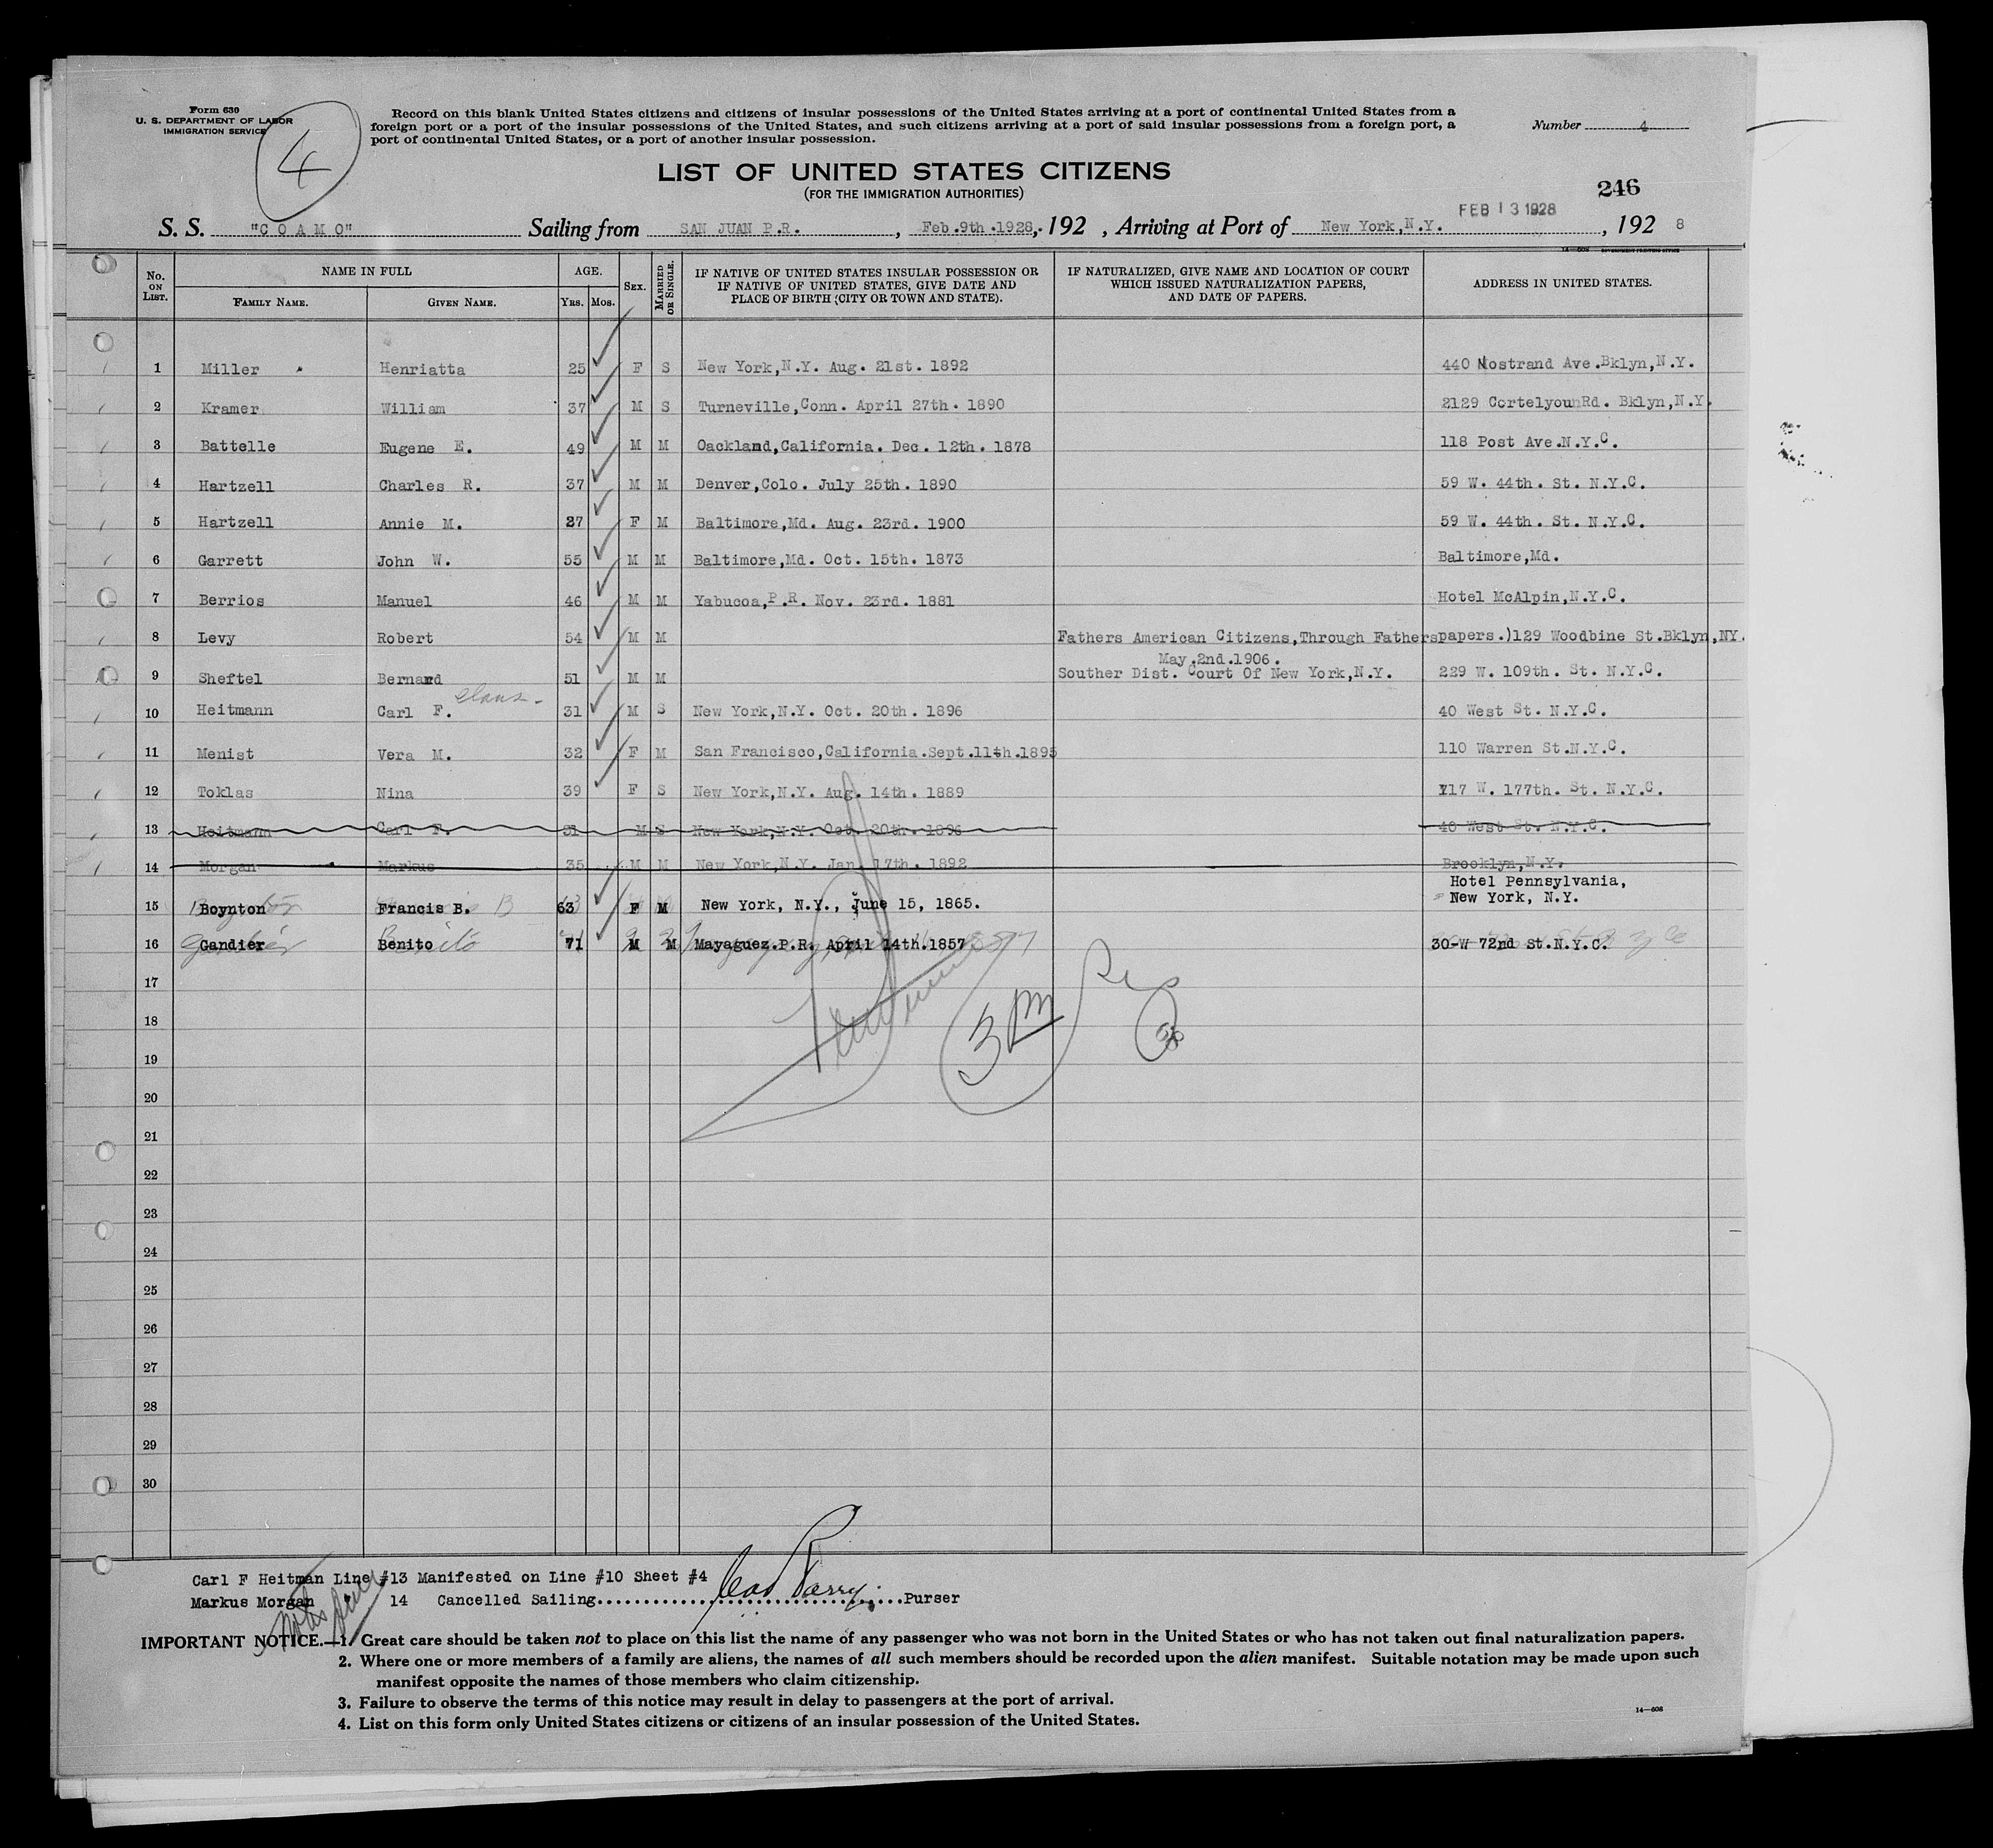 Form 630
U. S. DEPARTMENT OF LABOR
IMMIGRATION SERVICE
4
Record on this blank United States citizens and citizens of insular possessions of the United States arriving at a port of continental United States from a
foreign port or a port of the insular possessions of the United States, and such citizens arriving at a port of said insular possessions from a foreign port, a
port of continental United States, or a port of another insular possession.
Number 4
LIST OF UNITED STATES CITIZENS
(FOR THE IMMIGRATION AUTHORITIES)
246
FEB 13 1928
S. S. "C O A M O" Sailing from SAN JUAN P.R. , Feb.9th.1928, 192 , Arriving at Port of New York,N.Y. , 192 8
14-608 GOVERNMENT PRINTING OFFICE
No. ON LIST. NAME IN FULL FAMILY NAME. GIVEN NAME. AGE. YRS. MOS. SEX. MARRIED OR SINGLE. IF NATIVE OF UNITED STATES INSULAR POSSESSION OR IF NATIVE OF UNITED STATES, GIVE DATE AND PLACE OF BIRTH (CITY OR TOWN AND STATE). IF NATURALIZED, GIVE NAME AND LOCATION OF COURT WHICH ISSUED NATURALIZATION PAPERS, AND DATE OF PAPERS. ADDRESS IN UNITED STATES.
1 Miller Henriatta 25 F S New York,N.Y. Aug. 21st. 1892 440 Nostrand Ave.Bklyn,N.Y.
2 Kramer William 37 M S Turneville,Conn. April 27th. 1890 2129 Cortelyou Rd. Bklyn,N.Y.
3 Battelle Eugene E. 49 M M Oackland,California. Dec. 12th. 1878 118 Post Ave.N.Y.C.
4 Hartzell Charles R. 37 M M Denver,Colo. July 25th. 1890 59 W. 44th. St. N.Y.C.
5 Hartzell Annie M. 27 F M Baltimore,Md. Aug. 23rd. 1900 59 W. 44th. St. N.Y.C.
6 Garrett John W. 55 M M Baltimore,Md. Oct. 15th. 1873 Baltimore,Md.
7 Berrios Manuel 46 M M Yabucoa,P.R. Nov. 23rd. 1881 Hotel McAlpin,N.Y.C.
8 Levy Robert 54 M M Fathers American Citizens,Through Fathers papers.)129 Woodbine St.Bklyn,NY.
May.2nd.1906.
9 Sheftel Bernard 51 M M Souther Dist. Court Of New York,N.Y. 229 W. 109th. St. N.Y.C.
10 Heitmann Carl F. 31 M S New York,N.Y. Oct. 20th. 1896 40 West St. N.Y.C.
11 Menist Vera M. 32 F M San Francisco,California.Sept.11th.1895 110 Warren St.N.Y.C.
12 Toklas Nina 39 F S New York,N.Y. Aug. 14th. 1889 717 W. 177th. St. N.Y.C.
13 Heitmann Carl F. 31 M S New York,N.Y. Oct. 20th. 1896 40 West St. N.Y.C.
14 Morgan Markus 35 M M New York,N.Y. Jan. 17th. 1892 Brooklyn,N.Y.
Hotel Pennsylvania,
15 Boynton Francis B. 63 F M New York, N.Y., June 15, 1865. New York, N.Y.
16 Gandier Benito 71 M M Mayaguez.P.R. April 14th.1857 30-W 72nd St.N.Y.C.
17
18
3 PM
19
20
21
22
23
24
25
26
27
28
29
30
Carl F Heitman Line #13 Manifested on Line #10 Sheet #4
Markus Morgan 14 Cancelled Sailing Purser
IMPORTANT NOTICE.—1. Great care should be taken not to place on this list the name of any passenger who was not born in the United States or who has not taken out final naturalization papers.
2. Where one or more members of a family are aliens, the names of all such members should be recorded upon the alien manifest. Suitable notation may be made upon such
manifest opposite the names of those members who claim citizenship.
3. Failure to observe the terms of this notice may result in delay to passengers at the port of arrival.
4. List on this form only United States citizens or citizens of an insular possession of the United States.
14-608